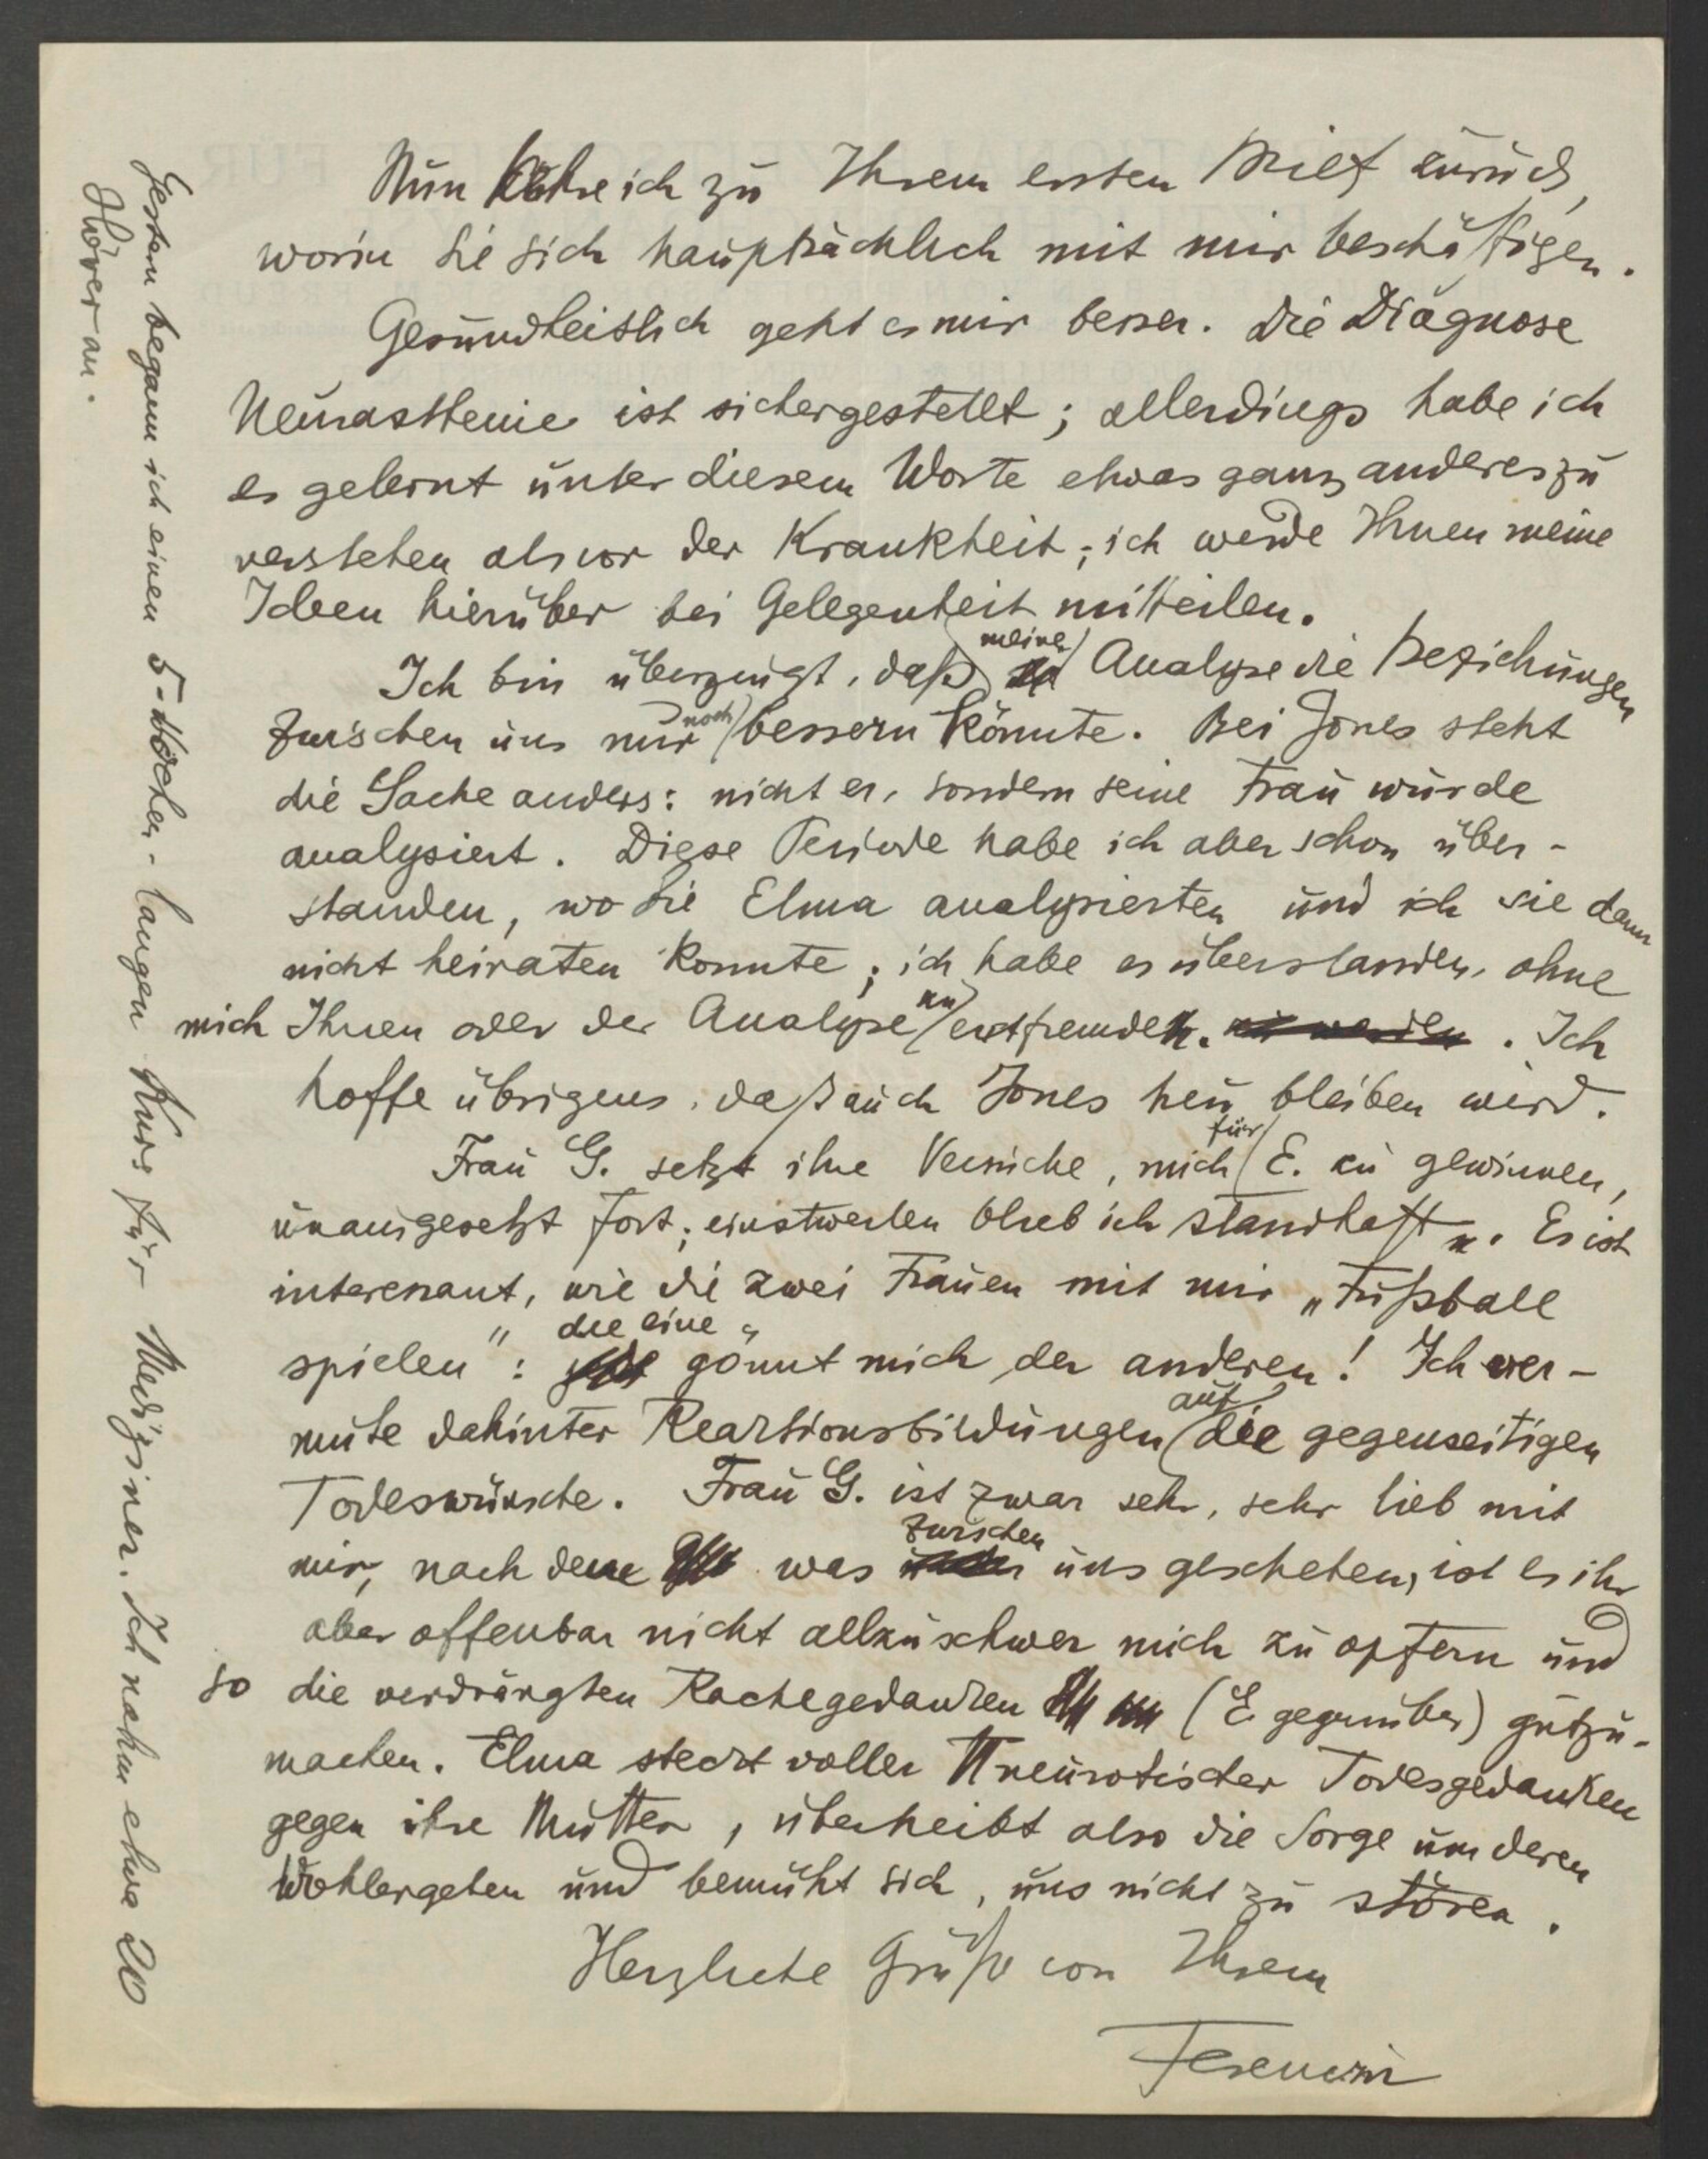 Nun kehre ich zu Ihrem ersten Brief zurück,
worin Sie sich hauptsächlich mit mir beschäftigen.
Gesundheitlich geht es mir besser. Die Diagnose
Neurasthenie ist sichergestellt; allerdings habe ich
es gelernt unter diesem Worte etwas ganz anderes zu
verstehen als vor der Krankheit; ich werde Ihnen meine
Ideen hierüber bei Gelegenheit mitteilen.
Ich bin überzeugt, daß meine Analyse die Beziehungen
zwischen uns nur noch bessern könnte. Bei Jones steht
die Sache anders: nicht er, sondern seine Frau wurde
analysiert. Diese Periode habe ich aber schon über-
standen, wo Sie Elma analysierten und ich sie dann
nicht heiraten konnte; ich habe es überstanden, ohne
mich Ihnen oder der Analyse zu entfremden. zu werden. Ich
hoffe übrigens, daß auch Jones treu bleiben wird.
Frau G. setzt ihre Versuche, mich für E. zu gewinnen,
unausgesetzt fort; einstweilen blieb ich standhaft. Es ist
interessant, wie die zwei Frauen mit mir „Fußball
spielen": „die eine" gönnt mich der anderen! Ich ver-
mute dahinter Reaktionsbildungen auf die gegenseitigen
Todeswünsche. Frau G. ist zwar sehr, sehr lieb mit
mir, nach dem was zwischen uns geschehen, ist es ihr
aber offenbar nicht allzuschwer mich zu opfern und
so die verdrängten Rachegedanken (E. gegenüber) gutzu-
machen. Elma steckt voller neurotischer Todesgedanken
gegen ihre Mutter, übertreibt also die Sorge um deren
Wohlergehen und bemüht sich, uns nicht zu stören.
Herzliche Grüße von Ihrem
Ferenczi
Gestern begann ich einen 5-Wochen-langen Kurs für Mediziner. Ich nahm etwa 20
Hörer an.